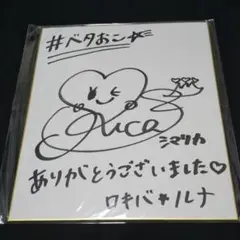 #ベタおこ☆
Rica
シマリカ
ありがとうございました♡
ロキバ★ルナ